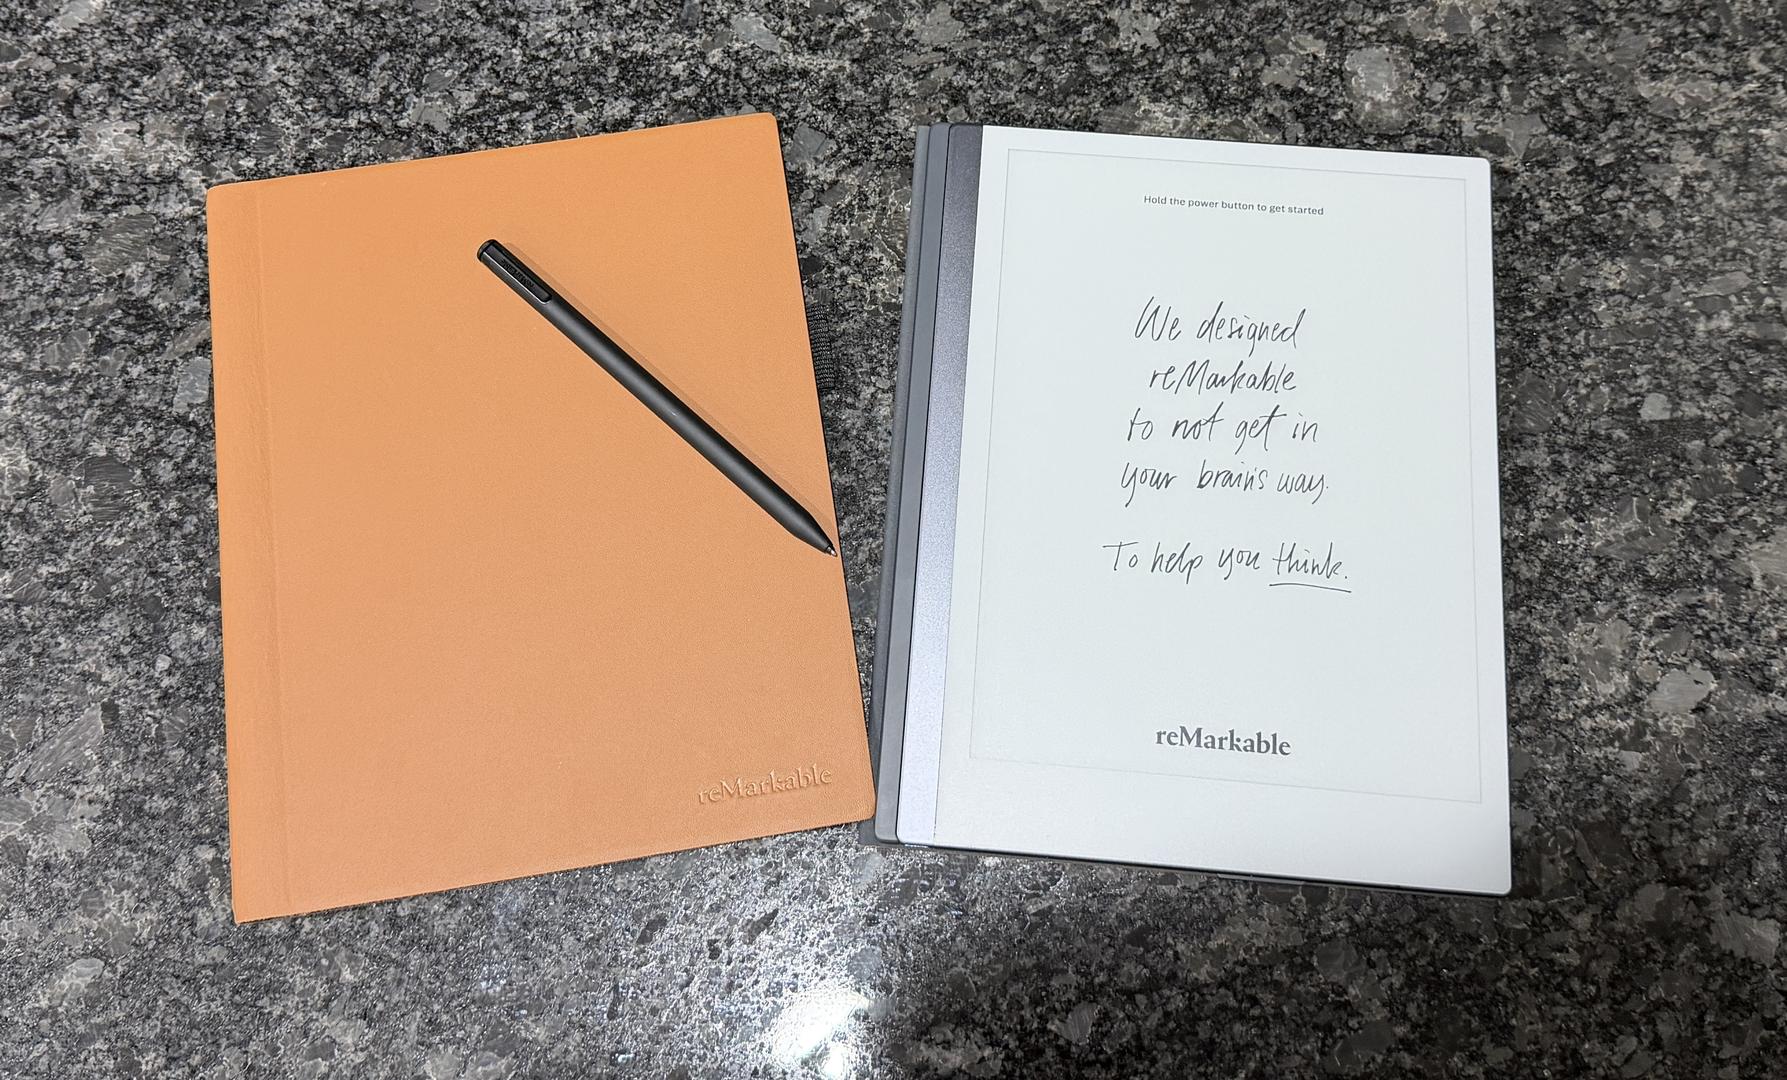 reMarkable
Hold the power button to get started
We designed
reMarkable
to not get in
your brain's way.
To help you think.
reMarkable